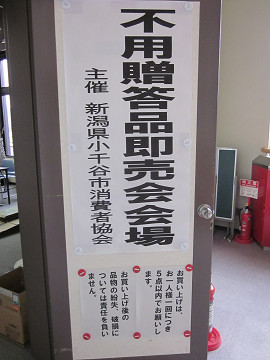 不用贈答品即売会会場
主催 新潟県小千谷市消費者協会
お買い上げは、
お一人様一回につき
５点以内でお願いし
ます。
お買い上げ後の
品物の紛失、破損に
ついては責任を負い
ません。